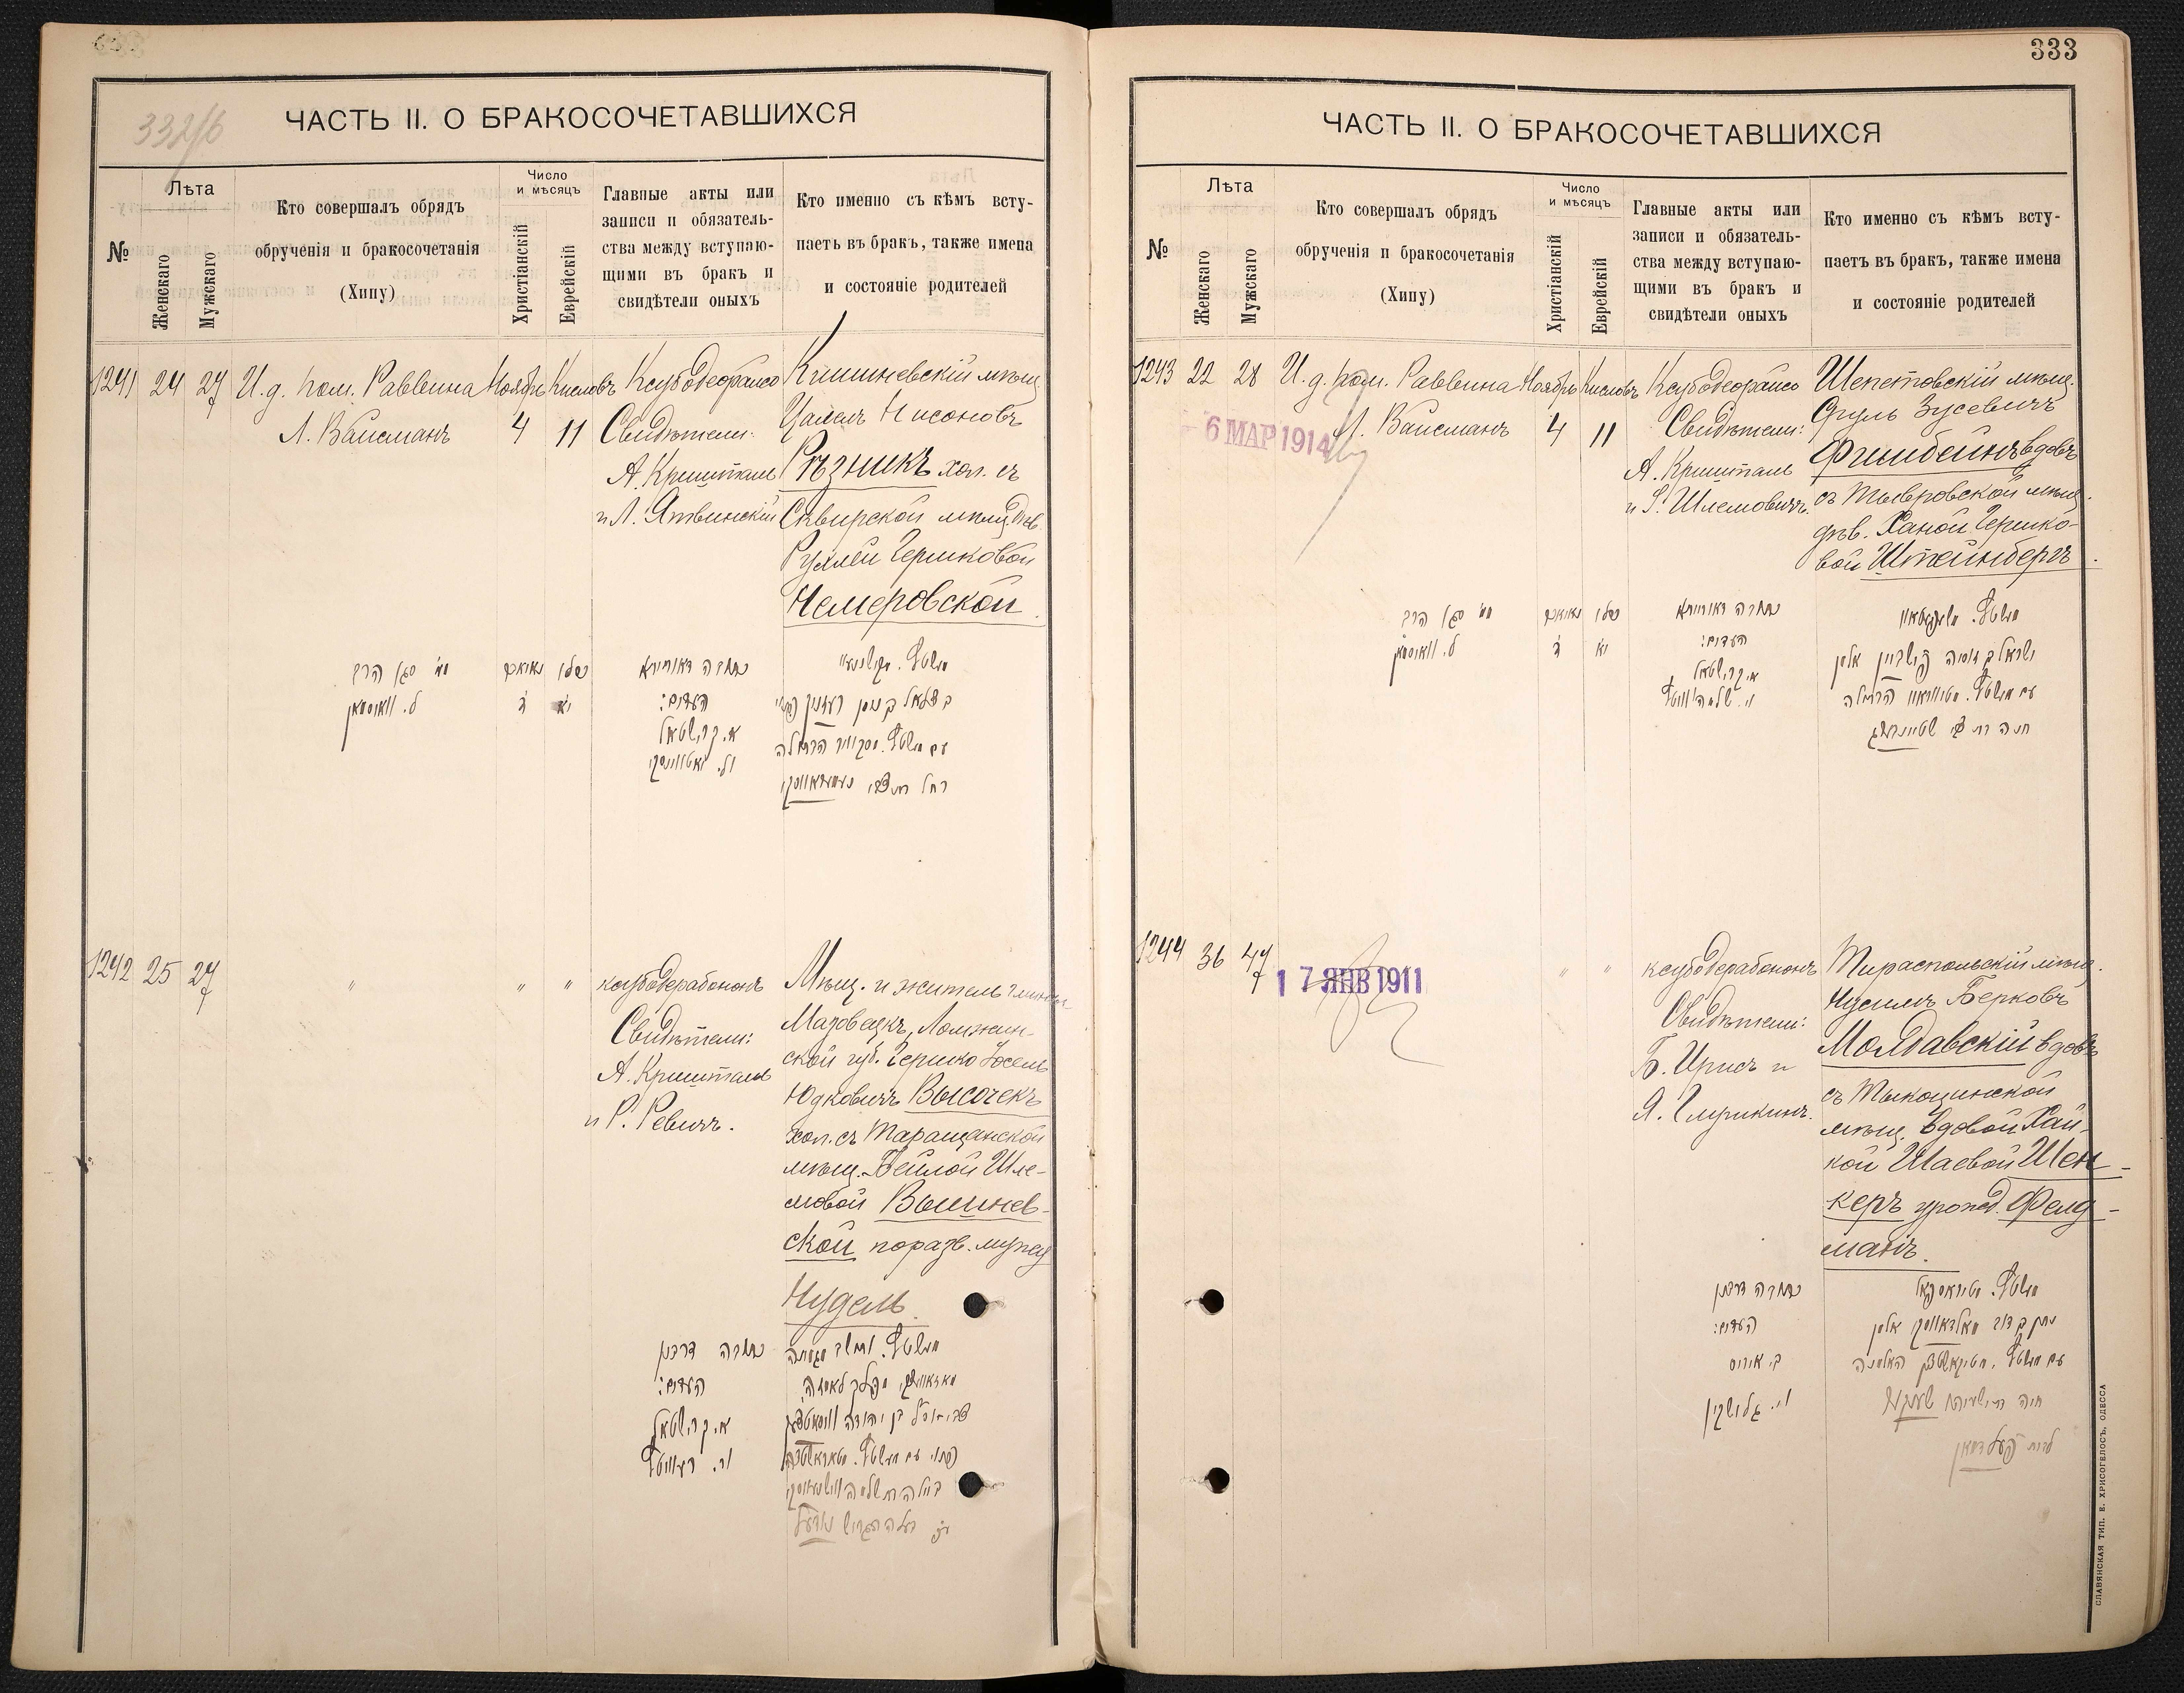 332/б
ЧАСТЬ II. О БРАКОСОЧЕТАВШИХСЯ
№
Лѣта
Женскаго
Мужскаго
Кто совершалъ обрядъ
обрученія и бракосочетанія
(Хипу)
Число
и мѣсяцъ
Христіанскій
Еврейскій
Главные акты или
записи и обязатель-
ства между вступаю-
щими въ бракъ и
свидѣтели оныхъ
Кто именно съ кѣмъ всту-
паетъ въ бракъ, также имена
и состояніе родителей
1241 24 27
И. д. пом. Раввина
Л. Вайсманъ
Ноябрь
4
Кисловъ
11
Ксубодеорайсо
Свидѣтели:
А. Кришталь
и Л. Ятвинскій
Кишиневскій мѣщ.
Цалель Нисоновъ
Рѣзникъ хол. съ
Сквирской мѣщ. дѣв.
Рухлей Гершковой
Немеровской.
כתובה דאורייתא
העדים:
א. קרישטאל
ול. יאטווינסקי
כסלו
יא
נאיאבר
ד
ל. וואיסמאן
1242 25 27
" " "
ксубодерабононъ
Свидѣтели:
А. Кришталь
и Р. Ревичъ.
Мѣщ. и житель гмины
Мазовецкъ, Ломжин-
ской губ. Гершко Іосель
Юдковичъ Высочекъ
хол. съ Таращанской
мѣщ. Бейлой Шле-
мовой Вышнев-
ской по разв. мужу
Нудель.
כתובה דרבנן
העדים:
א. קרישטאל
ור. רעוויטש
333
ЧАСТЬ II. О БРАКОСОЧЕТАВШИХСЯ
№
Лѣта
Женскаго
Мужскаго
Кто совершалъ обрядъ
обрученія и бракосочетанія
(Хипу)
Число
и мѣсяцъ
Христіанскій
Еврейскій
Главные акты или
записи и обязатель-
ства между вступаю-
щими въ бракъ и
свидѣтели оныхъ
Кто именно съ кѣмъ всту-
паетъ въ бракъ, также имена
и состояніе родителей
1243 22 28
И. д. пом. Раввина
Л. Вайсманъ
6 МАР 1914
Ноябрь
4
Кисловъ
11
Ксубодеорайсо
Свидѣтели:
А. Кришталь
и С. Шлемовичъ.
Шепетовскій мѣщ.
Сруль Зусевичъ
Фишбейнъ вдовъ
съ Тывровской мѣщ.
дѣв. Ханой Гершко-
вой Штейнбергъ.
כתובה דאורייתא
העדים:
א. קרישטאל
כסלו
יא
נאיאבר
ד
ל. וואיסמאן
1244 36 47
17 ЯНВ 1911
" "
ксубодерабононъ
Свидѣтели:
Б. Урисъ и
Я. Глушкинъ.
Тираспольскій мѣщ.
Нусилъ Берковъ
Молдавскій вдовъ
съ Тыкоцинской
мѣщ. вдовой Хай-
кой Шаевой Шен-
керъ урожд. Фельд-
манъ.
כתובה דרבנן
העדים:
ב. אוריס
וי. גלושקין
СЛАВЯНСКАЯ ТИП. Е. ХРИСОГЕЛОСЪ, ОДЕССА